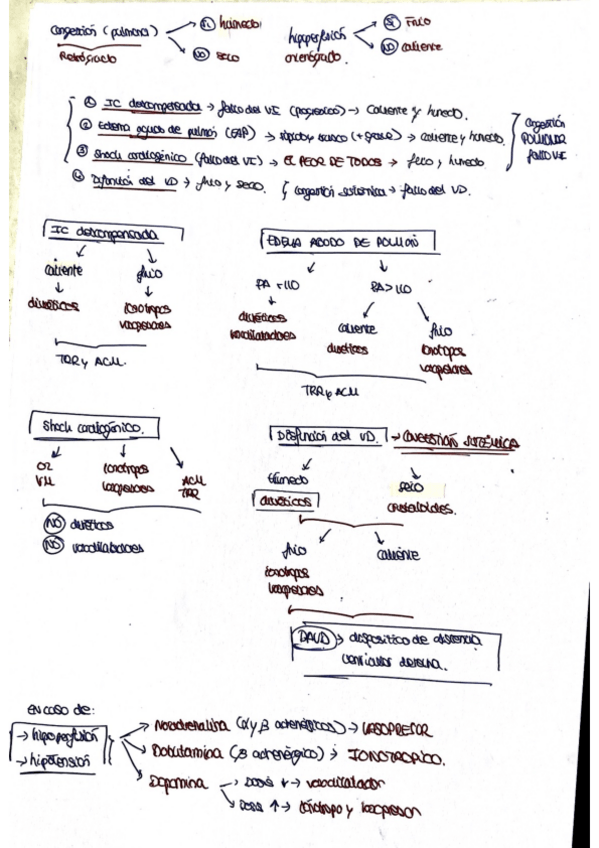 congestión (pulmonar) → SI húmedo
→ NO seco
Retrógrado
hipoperfusión → SI frío
→ NO caliente
anterógrado.
① IC descompensada → fallo del VI (progresivo) → caliente y húmedo.
② Edema agudo de pulmón (EAP) → rápido y brusco (+ grave) → caliente y húmedo.
③ Shock cardiogénico (fallo del VI) → EL PEOR DE TODOS → frío y húmedo
④ Disfunción del VD → frío y seco. { congestión sistémica → fallo del VD.
congestión
PULMONAR
fallo VI
IC descompensada
caliente
frío
diuréticos
ionotropos
vasopresores
TRR y ACM.
EDEMA AGUDO DE PULMÓN
PA <110
PA>110
diuréticos
vasodilatadores
caliente
frío
diuréticos
ionotropos
vasopresores
TRR y ACM
Shock cardiogénico.
O2
VM
ionotropos
vasopresores
ACM
TRR
NO diuréticos
NO vasodilatadores
Disfunción del VD. → CONGESTIÓN SISTÉMICA
húmedo
seco
diuréticos
cristaloides.
frío
caliente
ionotropos
vasopresores
DAVD → dispositivo de asistencia
ventricular derecha.
en caso de:
→ hipoperfusión
→ hipotensión
→ Noradrenalina (α y β adrenérgicos) → VASOPRESOR
→ Dobutamina (β adrenérgico) → IONOTROPICO.
→ Dopamina → Dosis ↓ → vasodilatador
→ Dosis ↑ → ionótropo y vasopresor